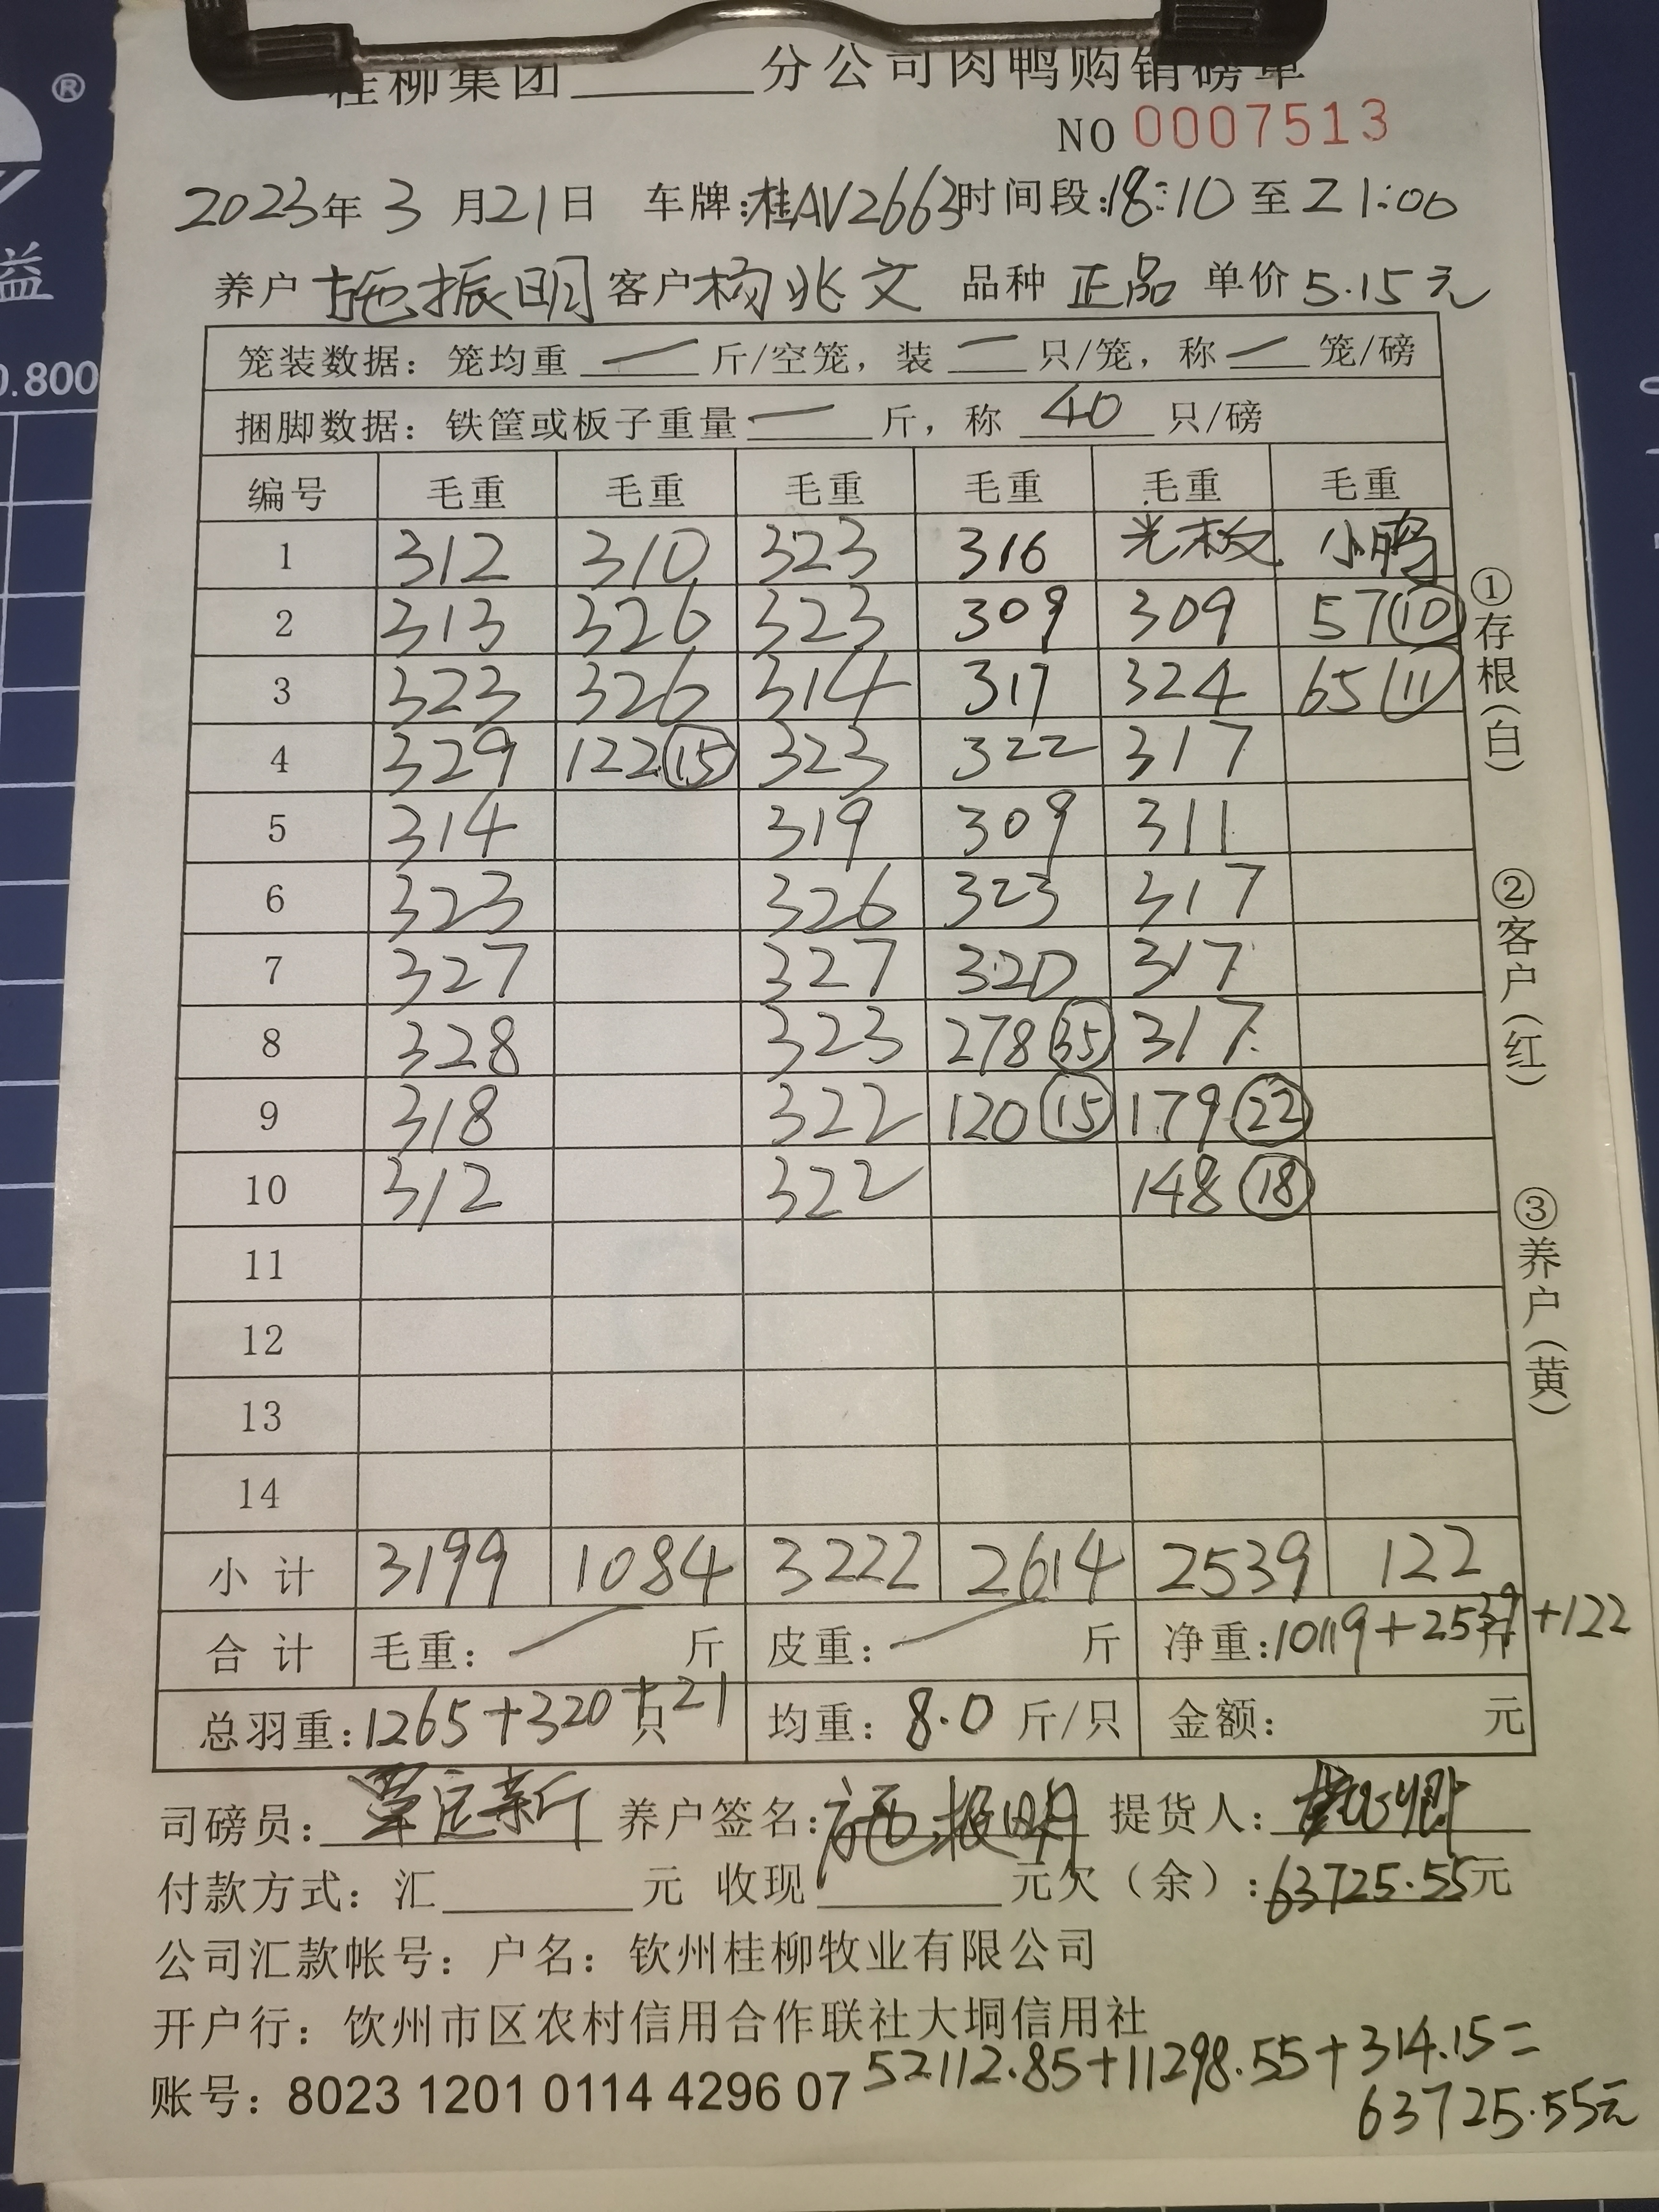 ®
益
0.800
桂柳集团______分公司肉鸭购销磅单
NO 0007513
2023年 3 月21日 车牌:桂AV2663时间段:18:10 至 21:00
养户 施振明 客户 杨兆文 品种 正品 单价 5.15元
笼装数据：笼均重 一 斤/空笼，装 一 只/笼，称 一 笼/磅
捆脚数据：铁筐或板子重量 一 斤，称 40 只/磅
编号 毛重 毛重 毛重 毛重 毛重 毛重
1 312 310 323 316 光板 小鸭
2 313 326 323 309 309 57⑩
3 323 326 314 317 324 65⑪
4 329 122⑮ 323 322 317
5 314 319 309 311
6 323 326 323 317
7 327 327 320 317
8 328 323 278㉟ 317
9 318 322 120⑮ 179㉒
10 312 322 148⑱
11
12
13
14
小计 3199 1084 3222 2614 2539 122
合计 毛重： 一 斤 皮重： 一 斤 净重:10119+2539斤+122
总羽重:1265+320只+21 均重：8.0 斤/只 金额： 元
司磅员： 养户签名:施振明 提货人:
付款方式：汇______元 收现______元欠（余）:63725.55元
公司汇款帐号：户名：钦州桂柳牧业有限公司
开户行：饮州市区农村信用合作联社大垌信用社
账号：8023 1201 0114 4296 07
52112.85+11298.55+314.15=
63725.55元
①存根(白)
②客户(红)
③养户(黄)